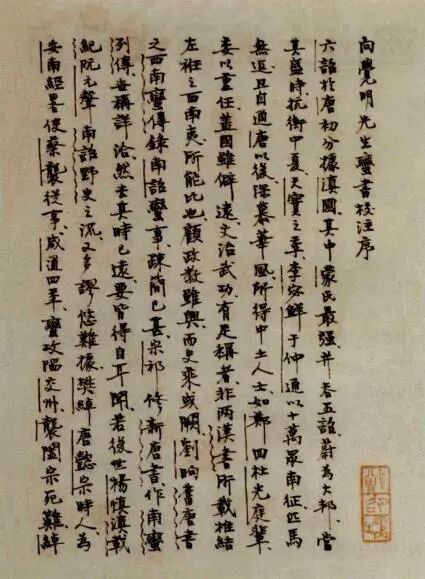 向覺明先生蠻書校注序
六詔於唐初分據滇國其中蒙氏最强并吞五詔蔚為大邦當
其盛時抗衡中夏天寶之季李宓鮮于仲通以十萬眾南征匹馬
無返且自通唐以後深慕華風所得中土人士如鄭回杜光庭輩
委以重任蓋國雖僻遠文治武功有足稱者非兩漢書所載椎結
左衽之西南夷所能比也顧政教雖興而史乘或闕劉昫舊唐書
之西南蠻傳錄南詔蠻事疎簡已甚宗祁修新唐書作南蠻
列傳世稱詳洽然去其時已遠要皆得自耳聞若後世楊慎滇載
紀阮元聲南詔野史之流又多謬悠難據樊綽唐懿宗時人為
安南經畧使蔡襲從事咸通四年蠻攻陷交州襲闔宗死難綽